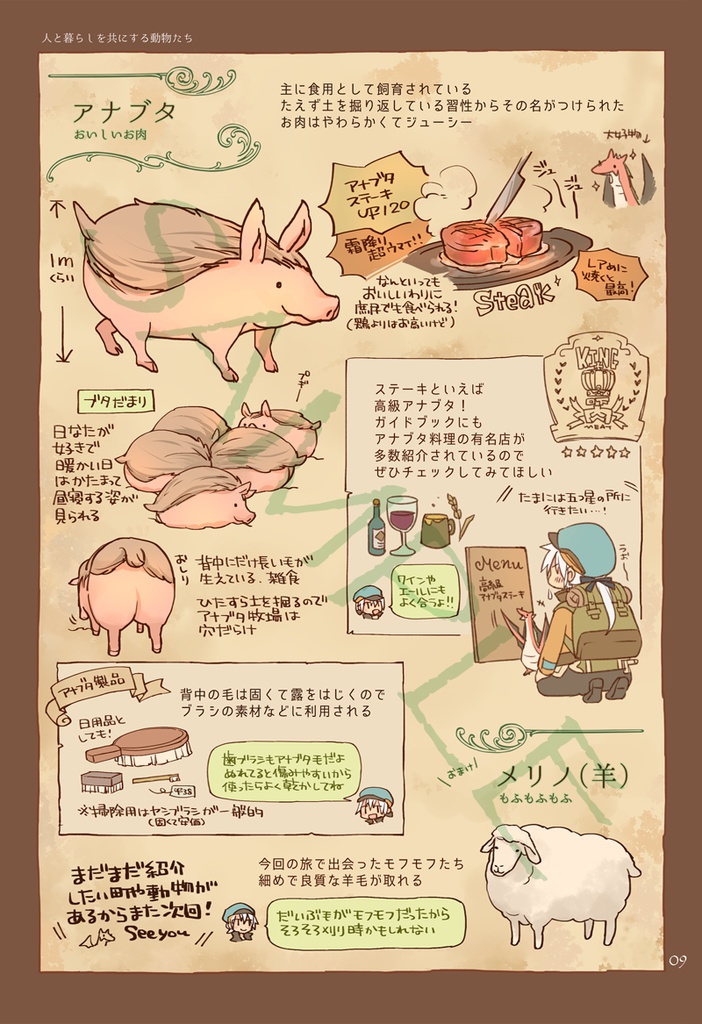 人と暮らしを共にする動物たち
アナブタ
おいしいお肉
主に食用として飼育されている
たえず土を掘り返している習性からその名がつけられた
お肉はやわらかくてジューシー
大好物
アナブタ
ステーキ
UP120
霜降り
超ウマイ!!
ジュ
ジュー
レアめに
焼くと
最高!
Steak
なんといっても
おいしいわりに
庶民でも食べられる!
(鶏よりはお高いけど)
1m
くらい
ブタだまり
プギー
日なたが
好きで
暖かい日
はかたまって
昼寝する姿が
見られる
ステーキといえば
高級アナブタ!
ガイドブックにも
アナブタ料理の有名店が
多数紹介されているので
ぜひチェックしてみてほしい
KING
MEAT
☆☆☆☆☆
たまには五つ星の所に
行きたい…!
うぉ〜
ワインや
エールにも
よく合うよ!!
Menu
高級
アナブタステーキ
おしり
背中にだけ長い毛が
生えている.雑食
ひたすら土を掘るので
アナブタ牧場は
穴だらけ
アナブタ製品
背中の毛は固くて露をはじくので
ブラシの素材などに利用される
日用品と
しても!
歯ブラシもアナブタ毛だよ
ぬれてると傷みやすいから
使ったらよく乾かしてね
※掃除用はヤシブラシが一般的
(固くて安価)
おまけ
メリノ(羊)
もふもふもふ
今回の旅で出会ったモフモフたち
細めで良質な羊毛が取れる
だいぶ毛がモフモフだったから
そろそろ刈り時かもしれない
まだまだ紹介
したい町や動物が
あるからまた次回!
See you
09
SAMPLE